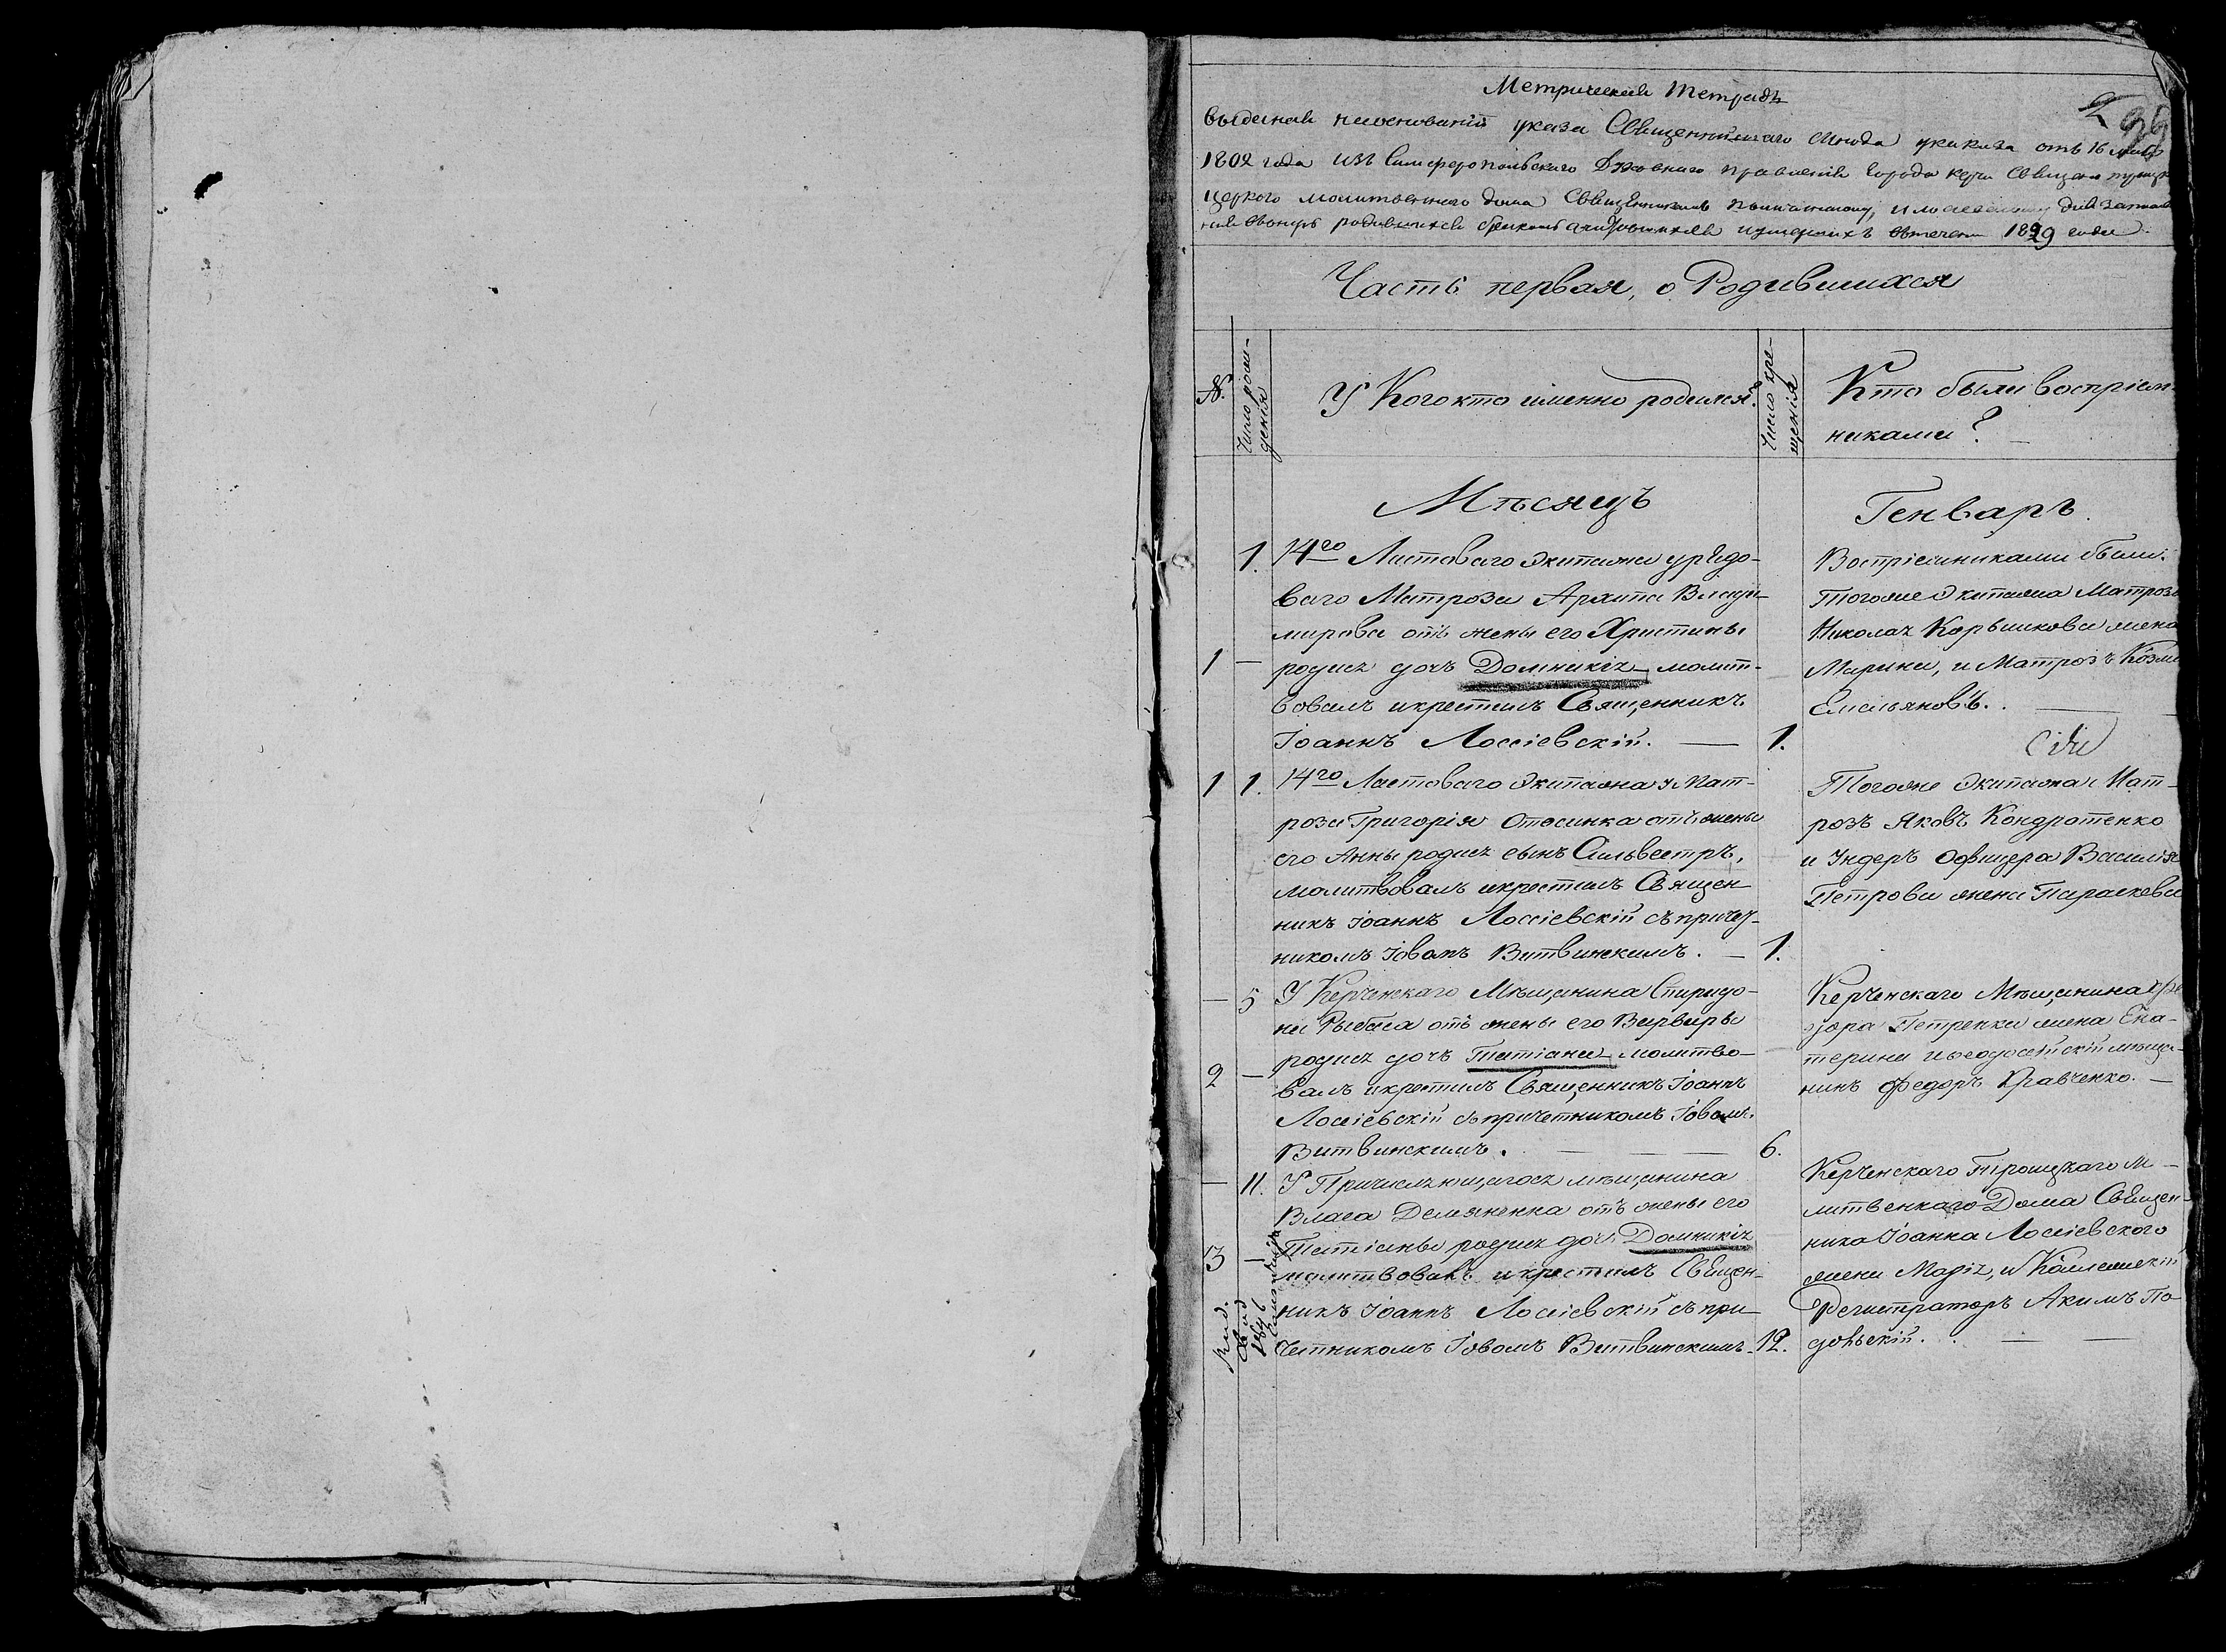 Метрическая Тетрадь
выданая наосновании указа Священнѣйшаго Синода указа отъ 16
1802 года изъ Симферопольскаго Духовнаго правленія города керчи
церкого молитвеннаго дома Священникамъ
родившихся бракомъ умершихъ втечени 1829 года.
Часть первая, о Родившихся
№.
Число рож-
денія
У Кого кто именно родился?
Число кре-
щенія
Кто были воспріем-
никами?
Мѣсяцъ
Генварь.
1. 14го Ластоваго Экипажа у рядо-
ваго Матроза Архипа Влади-
мирова отъ жены его Христины
1 — родися дочь Домникія молит-
вовалъ и крестилъ Священникъ
Іоаннъ Лоссіевскій. — 1.
Воспріемниками были:
Тогоже Экипажа Матроза
Николая Корьшкова жена
Марина, и Матрозъ Козма
Емельяновъ.
1 1. 14го Ластоваго Экипажа у Мат-
роза Григорія отъ жены
его Анны родися сынъ Сильвестръ,
молитвовалъ и крестилъ Священ-
никъ Іоаннъ Лоссіевскій съ причет-
никомъ Іовомъ Витвинскимъ. — 1.
Тогоже Экипажа Мат-
розъ Яковъ Кондратенко
и Ундеръ Офицера Василія
Петрова жена Параскева
— 5 У Керченскаго Мѣщанина Спиридо-
на Рыбаса отъ жены его Варвары
2 — родися дочь Татіана молитво-
валъ и крестилъ Священникъ Іоаннъ
Лоссіевскій съ причетникомъ Іовомъ
Витвинскимъ. — — — 6.
Керченскаго Мѣщанина Фе
дора Петренка жена Ека-
терина и Феодосійскій мѣща-
нинъ Федоръ Кравченко. —
— 11. У Причисляющагося мѣщанина
Власа Демяненка отъ жены его
3 — Татіаны родися дочь Домникія
молитвовалъ и крестилъ Священ-
никъ Іоаннъ Лоссіевскій съ при-
четникомъ Іовомъ Витвинскимъ. 12.
Керченскаго Троицкаго М-
литвеннаго Дома Священ-
ника Іоанна Лоссіевского
жена Марія, и Коллежскій
Регистраторъ Акимъ По-
дольскій. — —